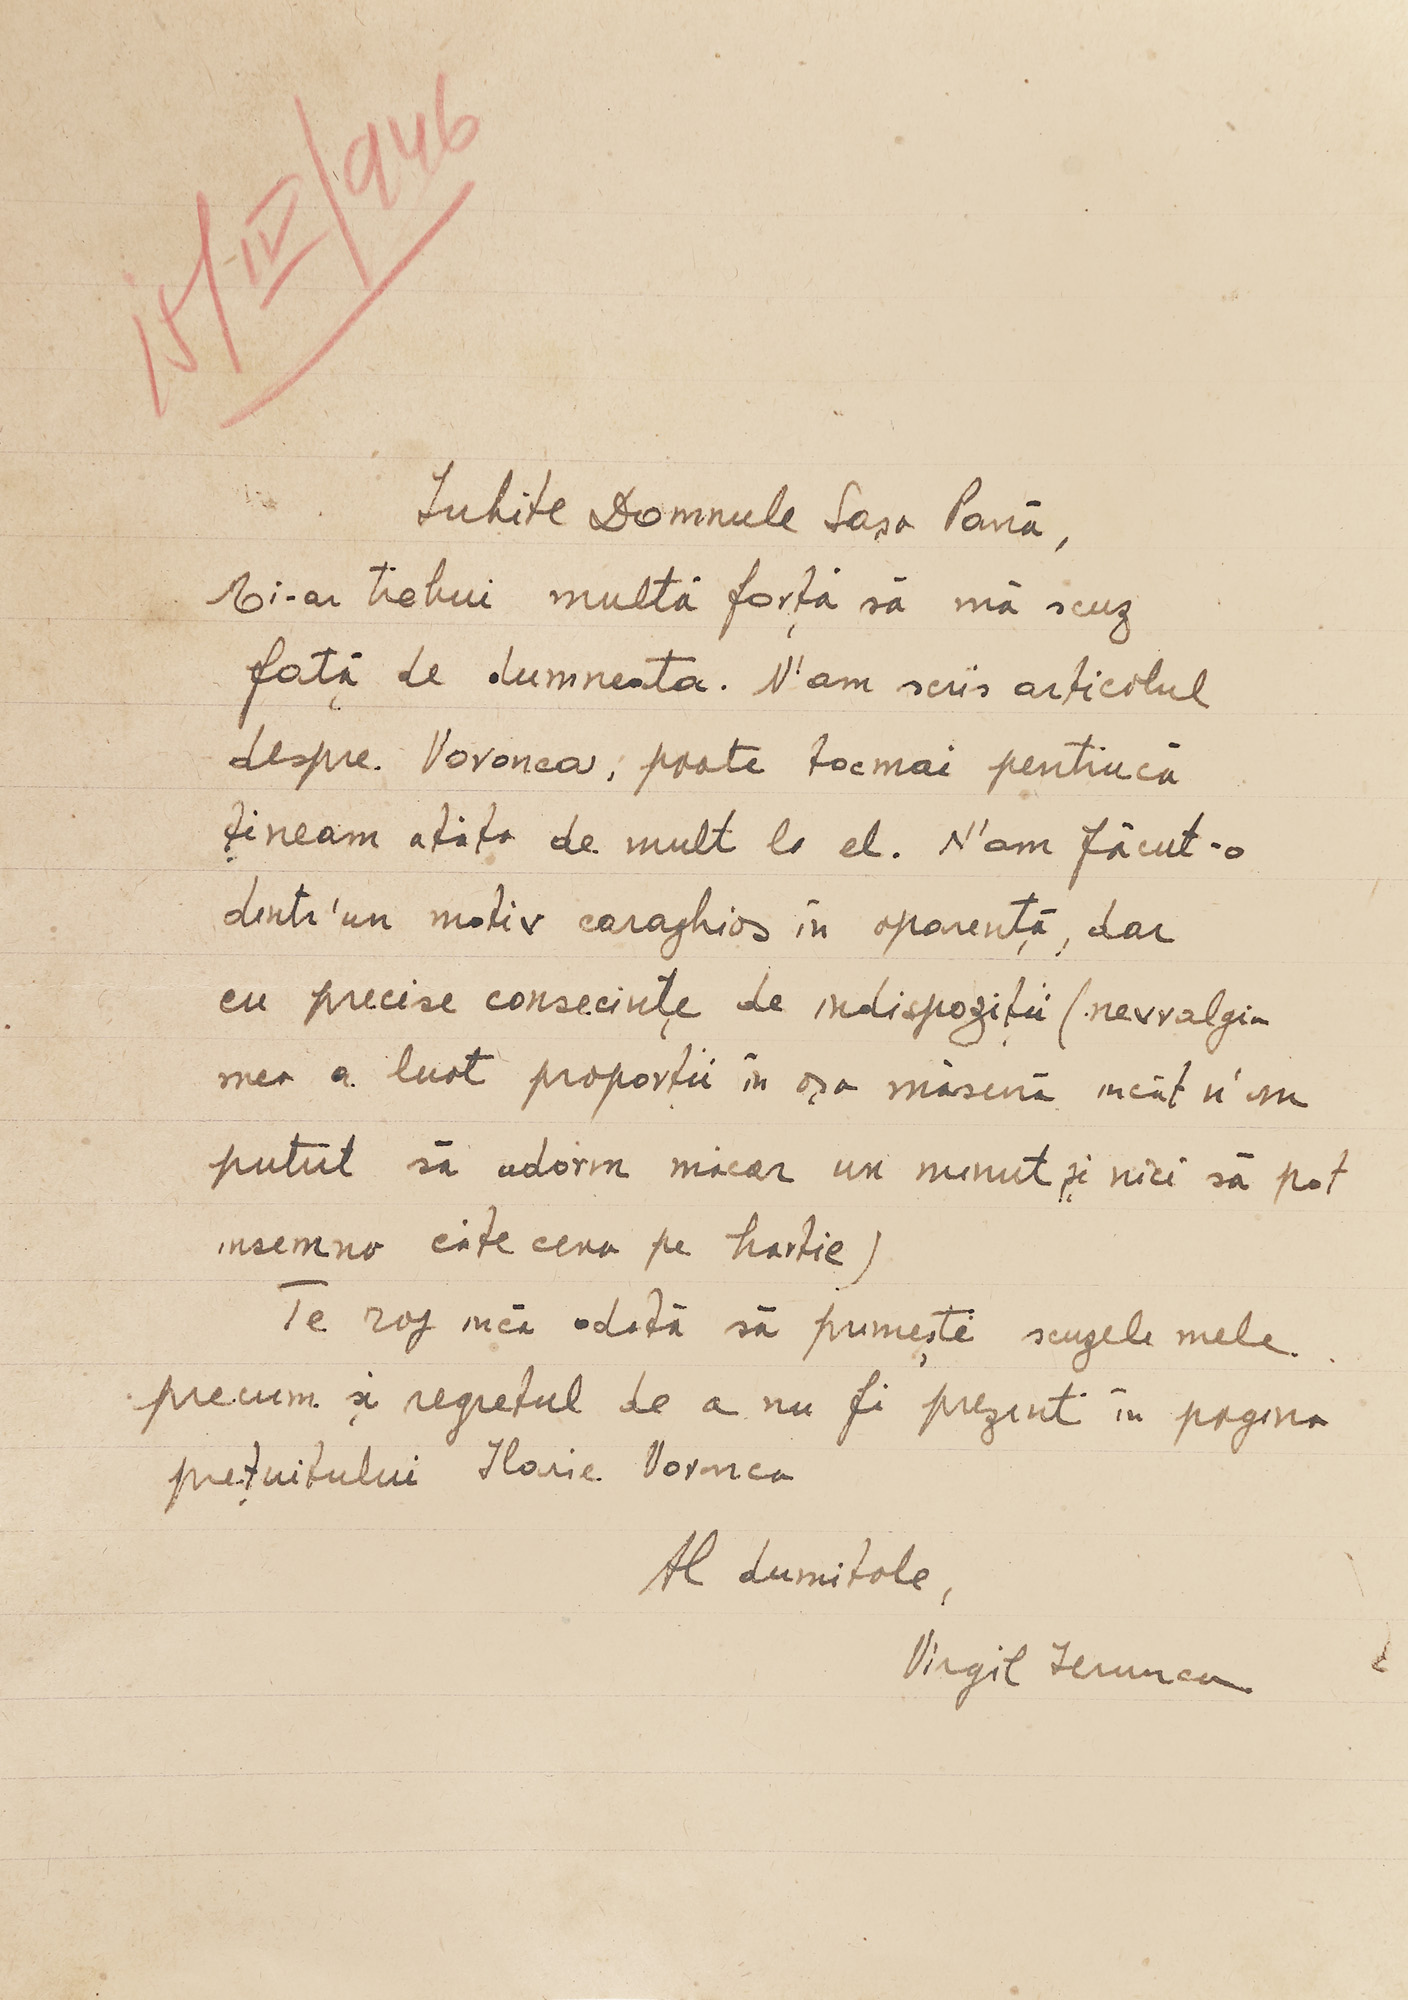 15/IV/946
Iubite Domnule Sașa Pană,
Mi-ar trebui multă forță să mă scuz
față de dumneata. N'am scris articolul
despre Voronca, poate tocmai pentrucă
țineam atâta de mult la el. N'am făcut-o
dintr'un motiv caraghios în aparență, dar
cu precise consecințe de indispoziții (nevralgia
mea a luat proporții în așa măsură încât n'am
putut să adorm măcar un minut și nici să pot
însemna câte ceva pe hartie)
Te rog încă odată să primești scuzele mele
precum și regretul de a nu fi prezent în pagina
prețuitului Ilarie Voronca
Al dumitale,
Virgil Ierunca